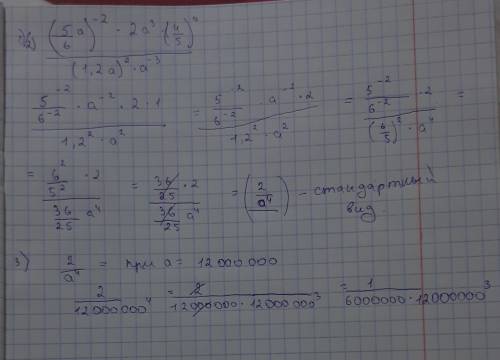 2) ((5/6 a)^-2 · 2a^3 · (4/5)^0) / ((1,2a)^2 · a^-3)
(5^-2/6^-2 · a^-2 · 2 · 1) / (1,2^2 · a^2) = (5^-2/6^-2 · a^-2 · 2) / (1,2^2 · a^2) = (5^-2/6^-2 · 2) / ((6/5)^2 · a^4) =
= (6^2/5^2 · 2) / (36/25 a^4) = (36/25 · 2) / (36/25 a^4) = (2/a^4) – стандартный
вид
3) 2/a^4 = при a = 12000000
2/12000000^4 = 2/(12000000 · 12000000^3) = 1/(6000000 · 12000000^3)